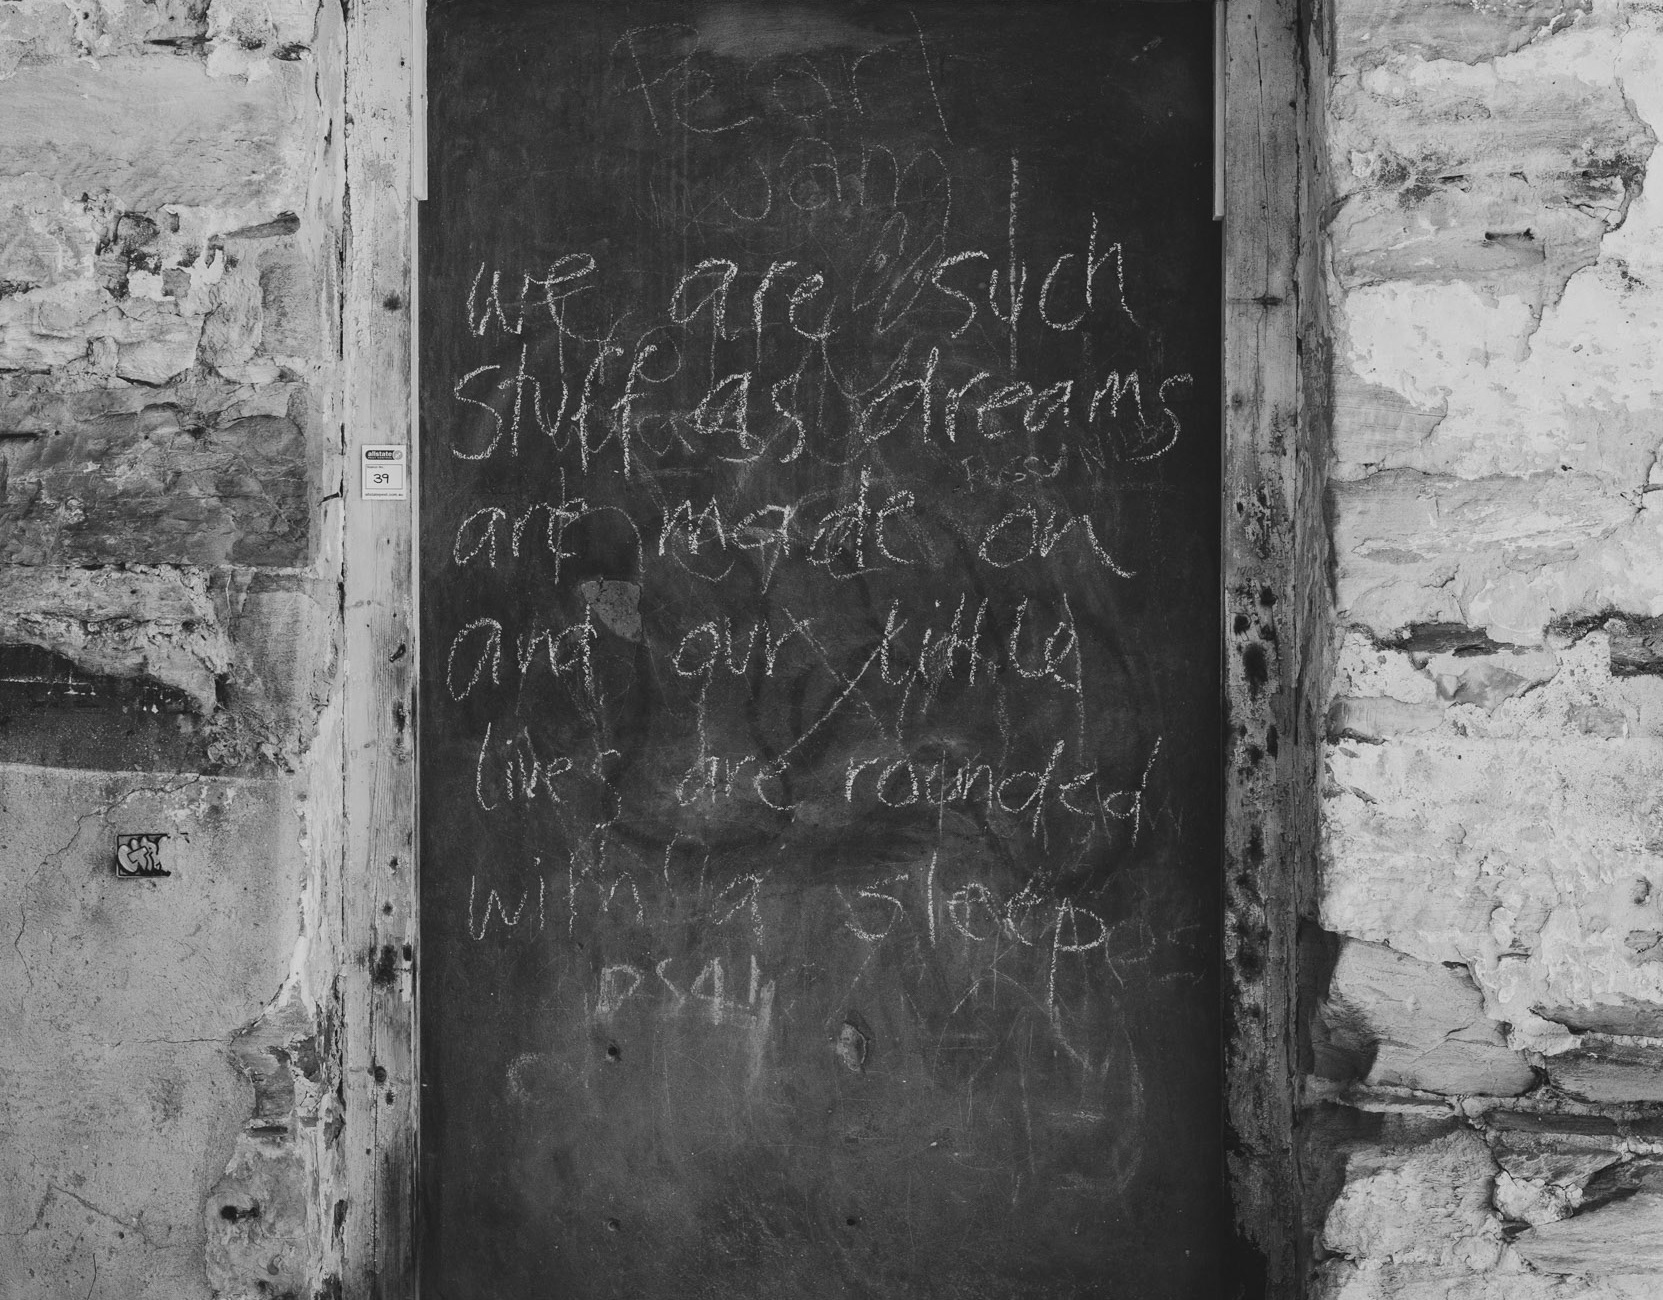 Pearl
Jam
we are such
stuff as dreams
are made on
and our little
lives are rounded
with a sleep
allstate
39